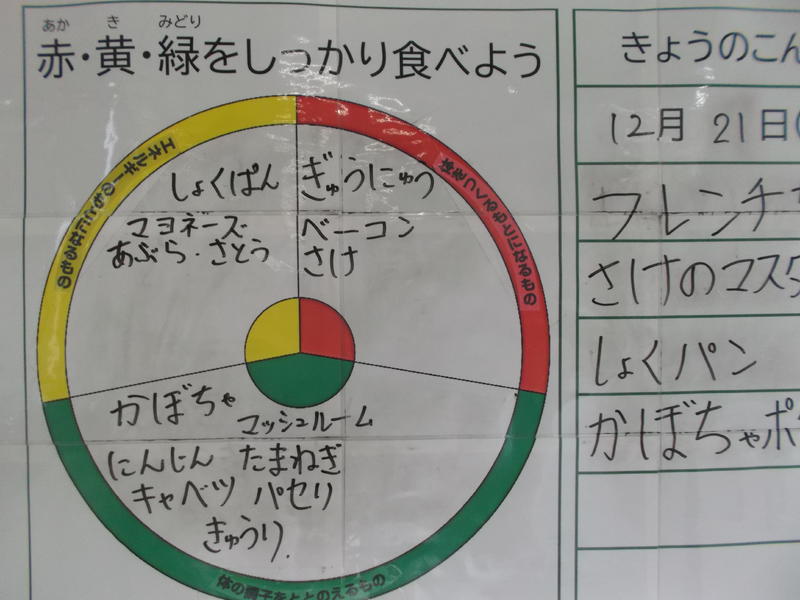 あか き みどり
赤・黄・緑をしっかり食べよう
エネルギーのもとになるもの
体をつくるもとになるもの
しょくぱん
マヨネーズ
あぶら・さとう
ぎゅうにゅう
ベーコン
さけ
かぼちゃ
マッシュルーム
にんじん たまねぎ
キャベツ パセリ
きゅうり
体の調子をととのえるもの
きょうのこん
12月 21日(
フレンチ
さけのマスタ
しょくパン
かぼちゃポ